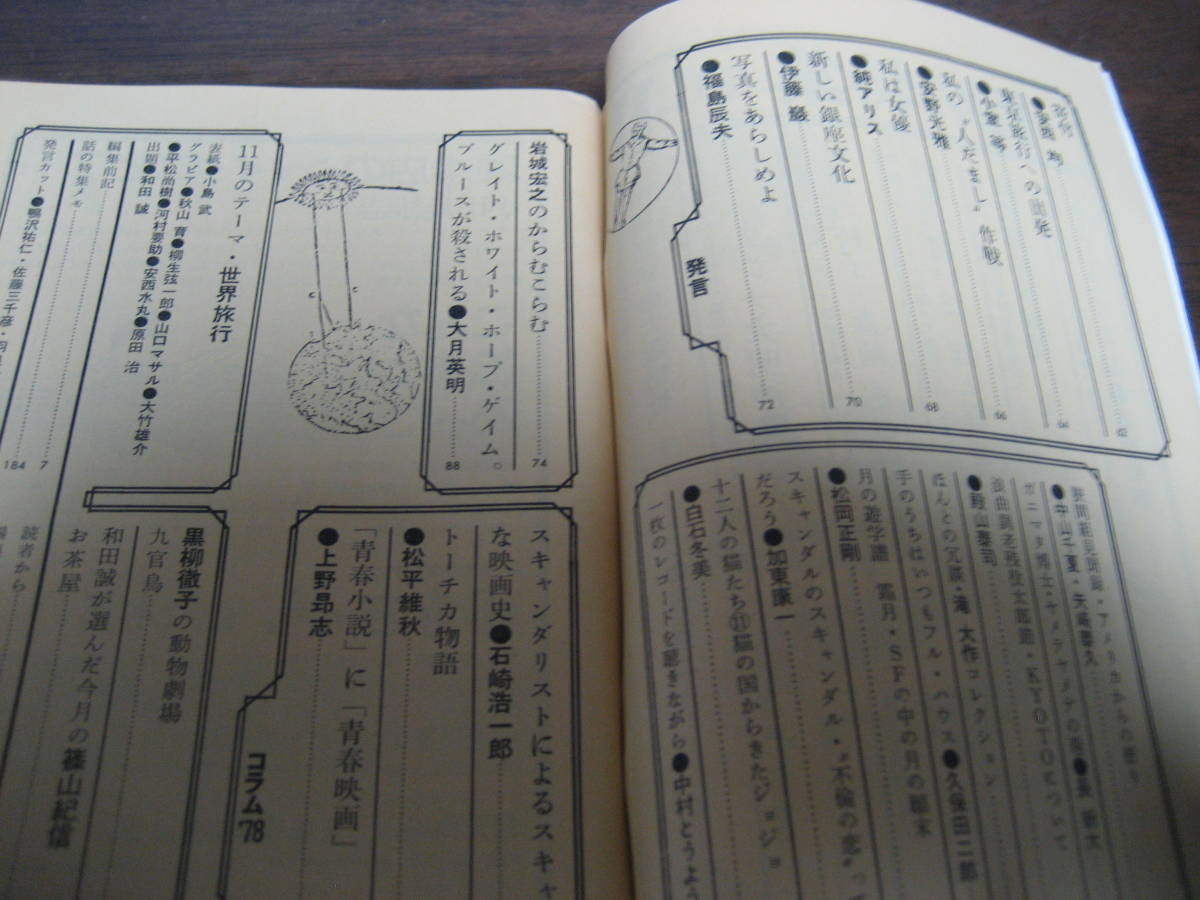 私の“人だまし”作戦
●安野光雅
68
私は女優
●純アリス
70
新しい銀座文化
●伊藤 巌
72
写真をあらしめよ
●福島辰夫
発言
66
64
62
ほんとの冗談・滝 大作コレクション
手のうちはいつもフル・ハウス●久保田二郎
月の遊学譜 霜月・SFの中の月の雛末
●松岡正剛
スキャンダルのスキャンダル・“不倫の恋”っ
だろう●加東康一
十二人の猫たち⑪猫の国からきたジョジョ
●白石冬美
一枚のレコードを聴きながら●中村とうよう
岩城宏之のからむこらむ
74
グレイト・ホワイト・ホープ・ゲイム。
ブルースが殺される●大月英明
88
スキャンダリストによるスキャ
な映画史●石崎浩一郎
トーチカ物語
●松平維秋
「青春小説」に「青春映画」
●上野昂志
コラム'78
11月のテーマ・世界旅行
表紙●小島 武
グラビア●秋山 育●柳生弦一郎●山口マサル●大竹雄介
●平松尚樹●河村要助●安西水丸●原田 治
出題●和田 誠
編集前記
7
話の特集メモ
184
発言カット●鴨沢祐仁・佐藤三千彦・羽
黒柳徹子の動物劇場
九官鳥
和田誠が選んだ今月の篠山紀信
お茶屋
読者から